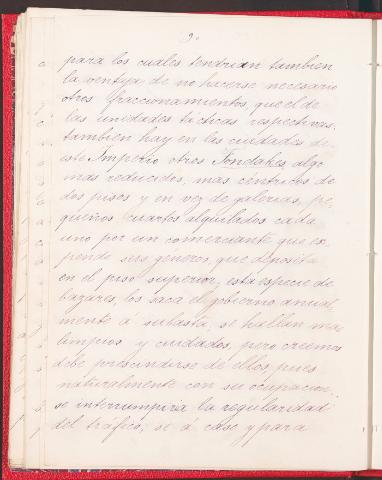 9.
para los cuales tendrian tambien
la ventaja de no hacerse necesario
otros fraccionamientos, que el de
las unidades tácticas respectivas.
tambien hay en las ciudades de
este Imperio otros Fondakes algo
mas reducidos, mas céntricos de
dos pisos y en vez de galerias, pe,
queños cuartos alquilados cada
uno por un comerciante que ex,
pende sus generos, que deposita
en el piso superior; esta especie de
bazares, los saca el gobierno anual,
mente á subasta, se hallan mas
limpios y cuidados, pero creemos
debe prescindirse de ellos, pues
naturalmente con su ocupacion
se interrumpiria la regularidad
del tráfico, se á case y para